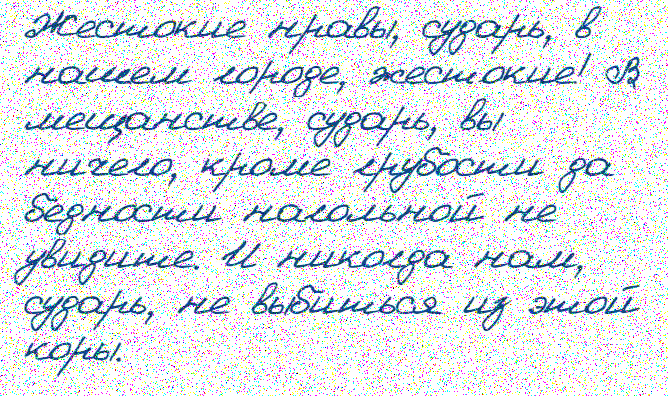 Жестокие нравы, сударь, в
нашем городе, жестокие! В
мещанстве, сударь, вы
ничего, кроме грубости да
бедности нагольной не
увидите. И никогда нам,
сударь, не выбиться из этой
коры.